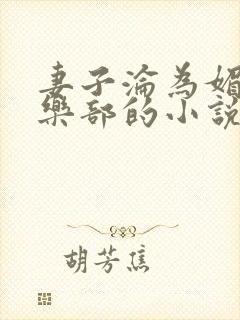 妻子淪為媚
樂部的小說
胡芳焦